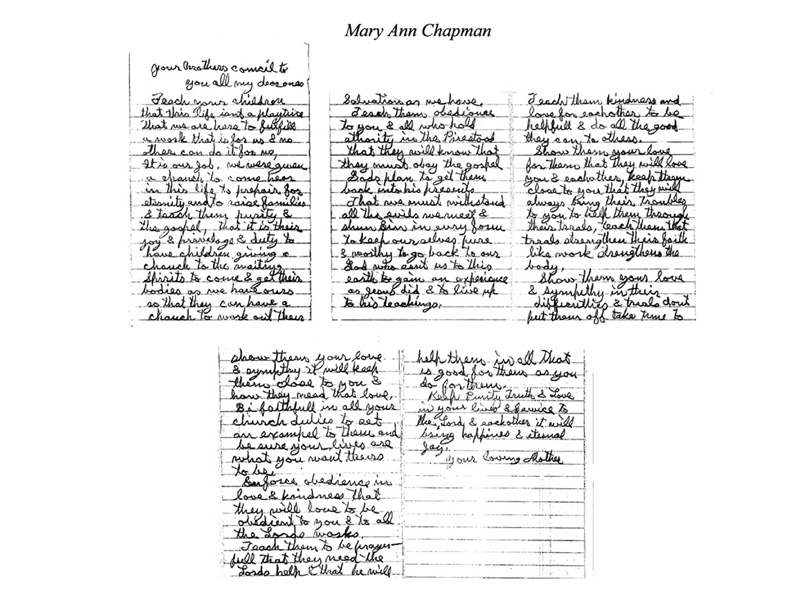 Mary Ann Chapman
your Mothers council to
you all my dear ones
Teach your children
that this life isnt a playtime
that we are here to fulfill
a work that is for us & no
other can do it for us,
It is our job. we were given
a chanch to come hear
in this life to prepair for
eternity and to raise families
& teach them purity &
the gospel, that it is their
joy & privelage & duty to
have children giving a
chanch to the waiting
Spirits to come & get their
bodies as we have ours
so that they can have a
chanch to work out their
Salvation as we have,
Teach them obedience
to you & all who hold
athority in the Priestood
that they will know that
they must obay the gospel
Gods plan to get them
back into his presents
That we must withstand
all the evils we meet &
shun Sin in evry form
to keep our selves pure
& worthy to go back to our
God who sent us to this
earth to gain an experience
as Jesus did & to live up
to his teachings,
Teach them kindness and
love for eachother to be
helpfull & do all the good
they can to others.
Show them your love
for them that they will love
you & eachother, keep them
close to you that they will
always bring their troubles
to you to help them through
their trials, teach them that
trials strengthen their faith
like work strengthens the
body,
Show them your love
& sympathy in their
difficulties & trials dont
put them off take time to
show them your love
& sympathy it will keep
them close to you &
how they need that love,
Be faithfull in all your
church duties to set
an exampel to them and
be sure your lives are
what you want theirs
to be.
Enforce obedience in
love & kindness that
they will love to be
obedient to you & to all
the Lords works.
Teach them to be prayer-
full that they need the
Lords help & that he will
help them in all that
is good for them as you
do for them.
Keep Purity Truth & Love
in your lives & Service to
the Lord & eachother it will
bring happines & eternal
joy.
Your Loving Mother